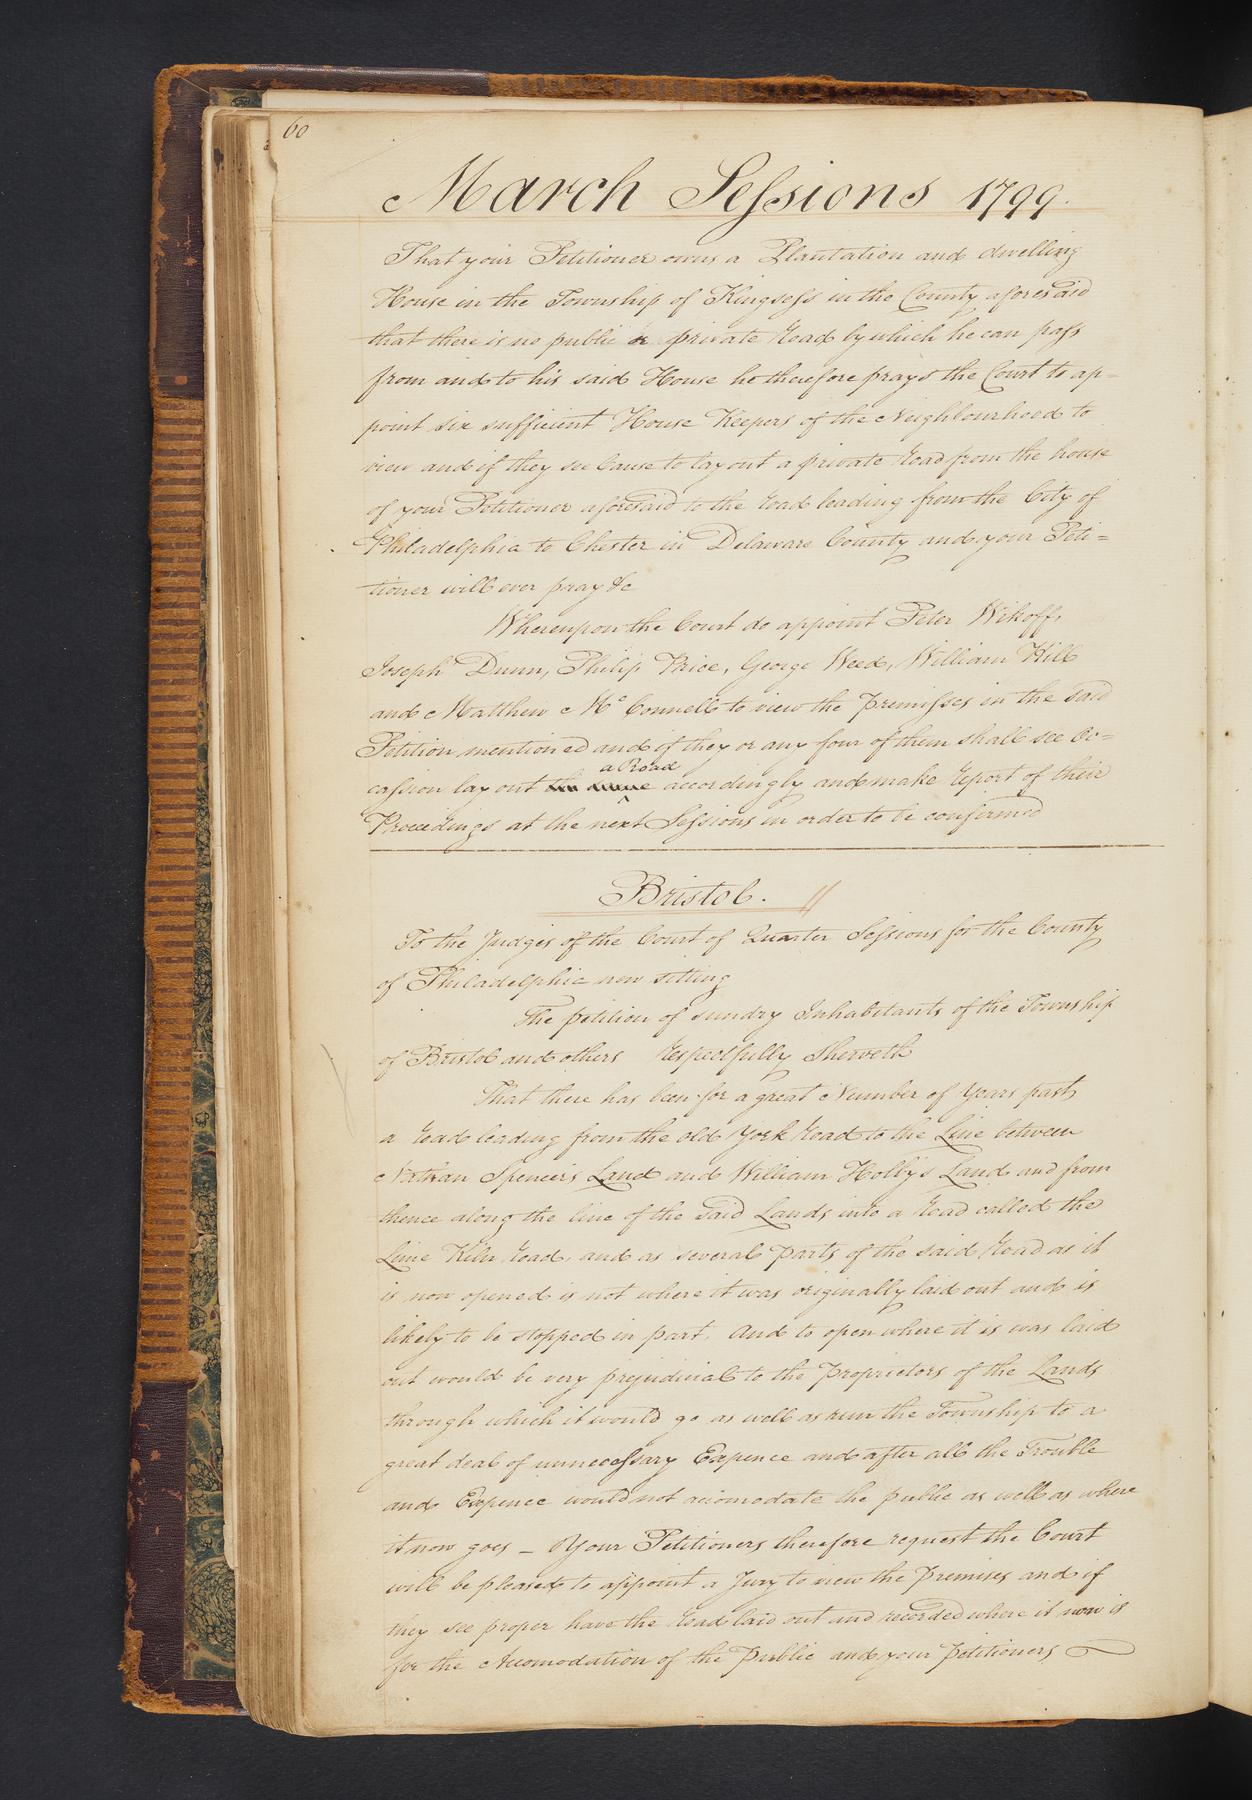 60
March Sessions 1799.
That your Petitioner owns a Plantation and dwelling
House in the Township of Kingsess in the County aforesaid
that there is no public or private Road by which he can pass
from and to his said House he therefore prays the Court to ap=
point six sufficient House Keepers of the Neighbourhood to
view and if they see Cause to lay out a private Road from the house
of your Petitioner aforesaid to the road leading from the City of
Philadelphia to Chester in Delaware County and your Peti=
tioner will ever pray &c
Whereupon the Court do appoint Peter Wikoff,
Joseph Dunn, Philip Price, George Weed, William Hill
and Matthew Mc Connell to view the premisses in the said
Petition mentioned and if they or any four of them shall see Oc=
a Road
cassion lay out accordingly and make report of their
Proceedings at the next Sessions in order to be confirmed
Bristol. //
To the Judges of the Court of Quarter Sessions for the County
of Philadelphia now sitting
The petition of sundry Inhabitants of the Township
of Bristol and others respectfully Sheweth
That there has been for a great Number of Years past
a road leading from the old York Road to the Line between
Nathan Spencer's Land and William Holby's Land and from
thence along the line of the said Lands into a Road called the
Lime Kiln Road, and as several parts of the said Road as it
is now opened is not where it was originally laid out and is
likely to be stopped in part. And to open where it is was laid
out would be very prejudicial to the Proprietors of the Lands
through which it would go as well as run the Township to a
great deal of unnecessary Expence and after all the Trouble
and Expence would not accomodate the public as well as where
it now goes - Your Petitioners therefore request the Court
will be pleased to appoint a Jury to view the Premises and if
they see proper have the road laid out and recorded where it now is
for the Accomodation of the Public and your petitioners